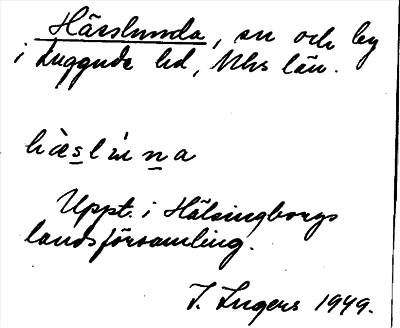 Härslunda, sn och by
i Luggude hd, Mhs län.
hæ̀sl ùn a
Uppt. i Hälsingborgs
landsförsamling.
I. Ingers 1949.